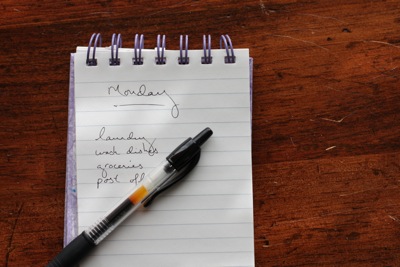 Monday
laundry
wash dishes
groceries
post off